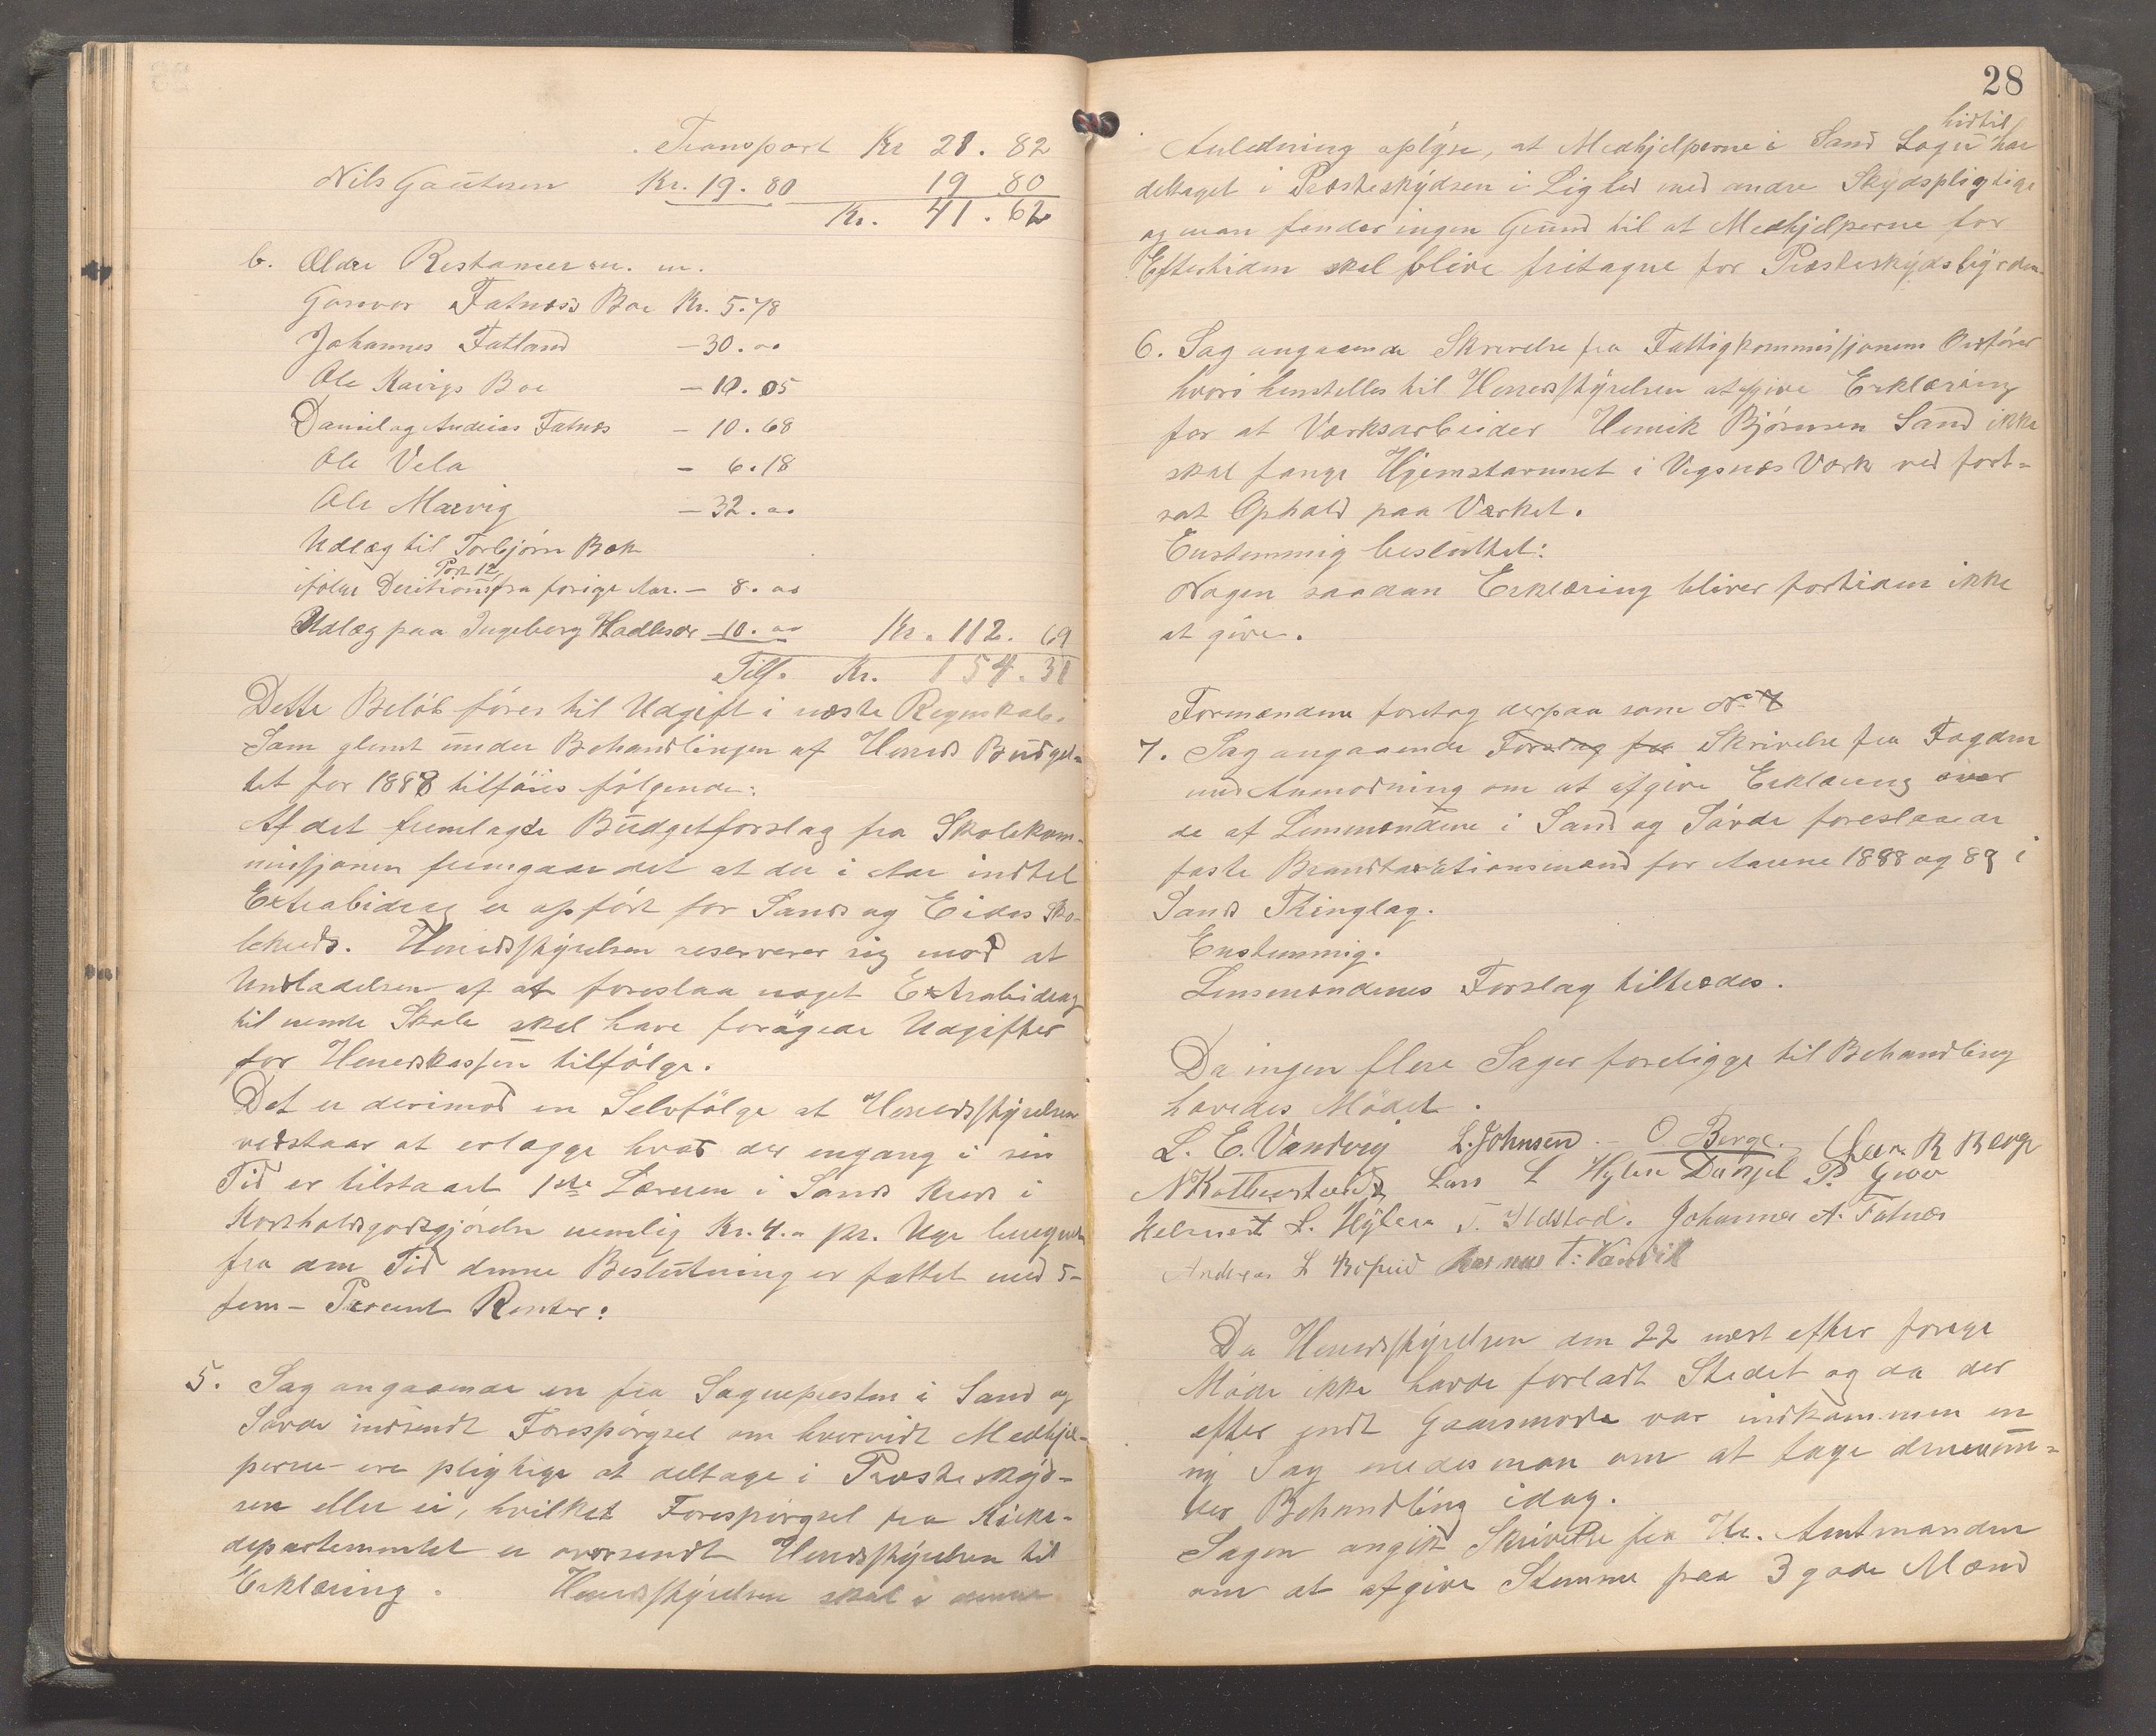 Transport Kr 21. 82
Nils Gautesen Kr. 19. 80 19 80
Kr. 41. 62
b. Ældre Restancer m. m.
Gunvor Fatnæs's Boe Kr. 5.78
Johannes Fatland – 30. 00
Ole Kaarigs Boe – 10. 05
Daniel og Andreas Fatnæs – 10. 68
Ole Vela – 6. 18
Ole Marvig – 32. 00
Udlæg til Torbjörn Bak
Post 12
ifölge Decitionsfra forige Aar. – 8. 00
Udlæg paa Ingeborg – 10. 00 Kr. 112. 69
Tils. Kr. 154. 31
Dette Belöb föres til Udgift i næste Regnskab.
Som glemt under Behandlingen af Herreds Budget-
tet for 1888 tilföies fölgende:
Af det fremlagte Budgetforslag fra Skolekom-
missjonen fremgaar det at der i Aar indtet
Extrabidrag er opfört for Sands og Eides Sko-
lekreds. Herredsstyrelsen reserverer sig mod at
Undladelsen af at foreslaa noget Extrabidrag
til nemte Skole skal have forøgede Udgifter
for Herredskassen tilfölge.
Det er derimod en Selvfölge at Herredsstyrelsen
vedstaar at erlægge hvad der engang i sin
Tid er tilstaaet 1ste Læreren i Sands Kreds i
Kostholdsgodtgjörelse nemlig Kr. 4.00 pr. Uge beregnet
fra den Tid denne Beslutning er fattet med 5-
fem – Percent Renter.
5. Sag angaaende en fra Sognepresten i Sand og
Søvde indsendt Forespörgsel om hvorvidt Medhjel-
perne ere pligtige at deltage i Præsteskyd-
sen eller ei, hvilket Forespörgsel fra Kirke-
departementet er oversendt Herredsstyrelsen til
Erklæring. Herredsstyrelsen skal i denne
28
hidtil
Anledning oplyse, at Medhjelperne i Sand Sogn har
deltaget i Præsteskydsen i Lighed med andre Skydspligtige
og man finder ingen Grund til at Medhjelperne for
Eftertiden skal blive fritagne for Præsteskydsbyrden.
6. Sag angaaende Skrivelse fra Fattigkommissjonens Ordförer
hvori henstelles til Herredsstyrelsen at afgive Erklæring
for at Værksarbeider Henrik Bjørnsen Sand ikke
skal fange Hjemstavnsret i Vigsnæs Værk ved fort-
sat Ophold paa Værket.
Enstemmig besluttet:
Nogen saadan Erklæring bliver fortiden ikke
at give.
Formændene foretog derpaa som No 7
7. Sag angaaende Forslag fra Skrivelse fra Fogden
med Anmodning om at afgive Erklæring over
de af Lensmændene i Sand og Søvde foreslaaede
faste Brandtaxtionsmænd for Aarene 1888 og 89 i
Sands Thinglag.
Enstemmig.
Lensmændenes Forslag tiltrædes.
Da ingen flere Sager foreligge til Behandling
hævedes Mödet.
L. E. Vandvig L. Johnsen. – O. Berge. R Berge
Lars L Hylen Danjel P. Gver
Helmert L. Hylen T. Ilstad. Johannes A. Fatnæs
Andreas L Rasmus T. Vandvik
Da Herredsstyrelsen den 22 næst efter forige
Möde ikke havde forladt Stedet og da der
efter endt Gaarsmøde var indkommen en
ny Sag enedes man om at tage denne un-
der Behandling idag.
Sagen angik Skrivelse fra Hr. Amtmanden
om at afgive Stemme paa 3 gode Mænd